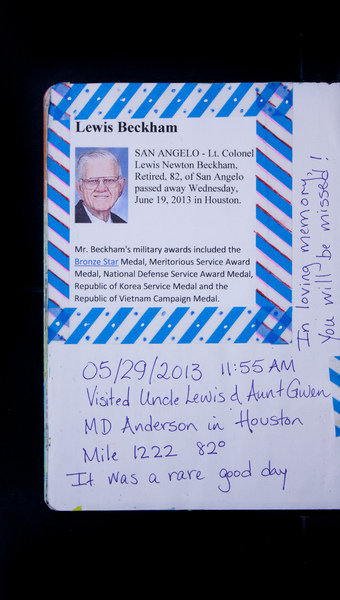 Lewis Beckham
SAN ANGELO - Lt. Colonel
Lewis Newton Beckham,
Retired, 82, of San Angelo
passed away Wednesday,
June 19, 2013 in Houston.
Mr. Beckham's military awards included the
Bronze Star Medal, Meritorious Service Award
Medal, National Defense Service Award Medal,
Republic of Korea Service Medal and the
Republic of Vietnam Campaign Medal.
In loving memory,
You will be missed!
05/29/2013 11:55 AM
Visited Uncle Lewis & Aunt Gwen
MD Anderson in Houston
Mile 1222 82°
It was a rare good day